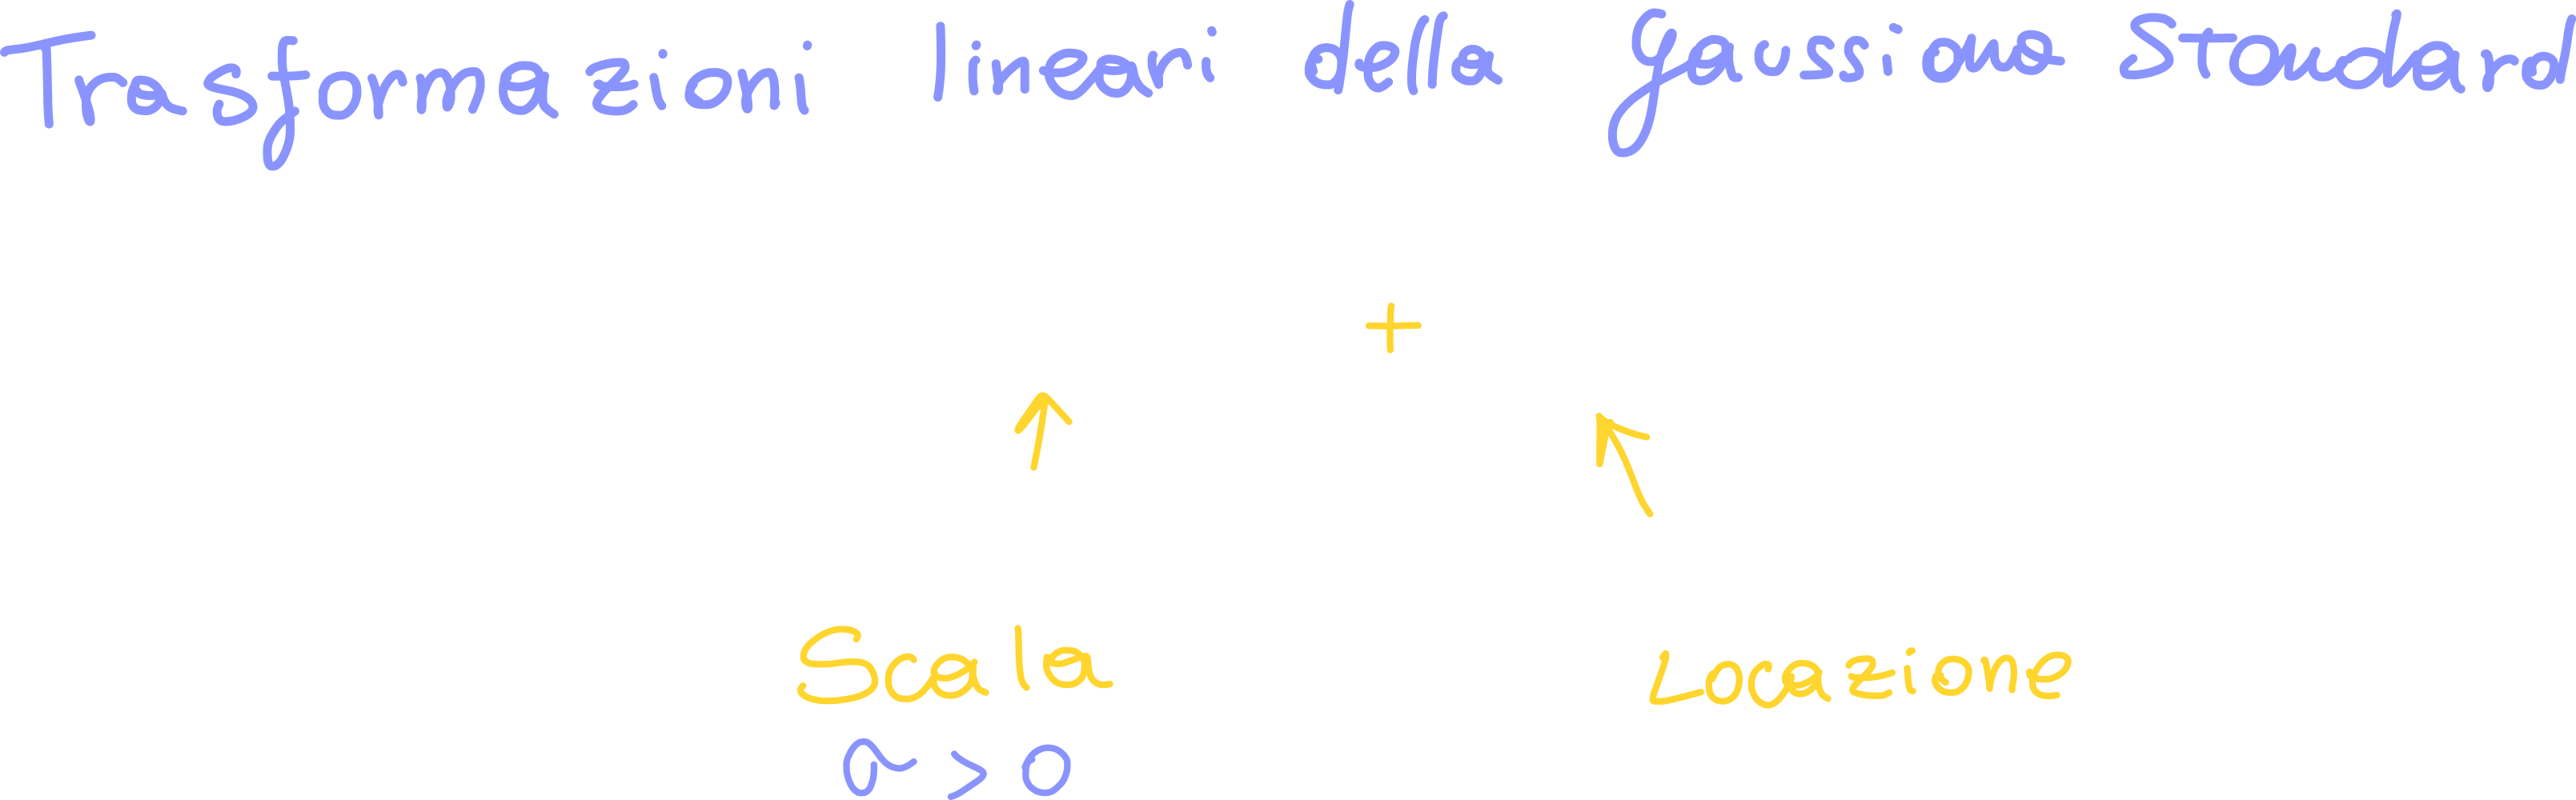 Trasformazioni lineari della Gaussiana Standard
+
Scala Locazione
a > 0